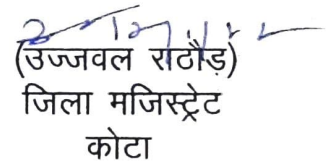 (उज्जवल राठौड़)
जिला मजिस्ट्रेट
कोटा